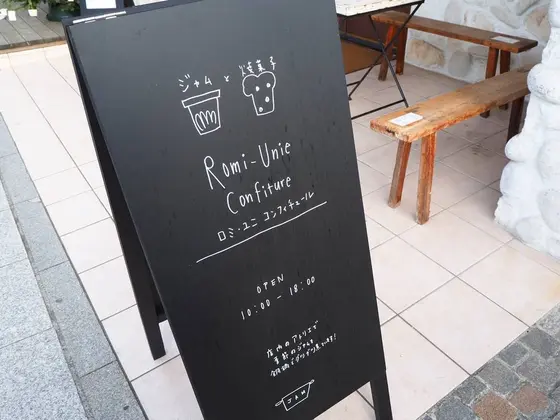 ジャムと焼菓子
Romi-Unie
Confiture
ロミ・ユニ コンフィチュール
OPEN
10:00 - 18:00
店内のアトリエで
季節のジャムを
銅鍋でグツグツ煮てます!
JAM